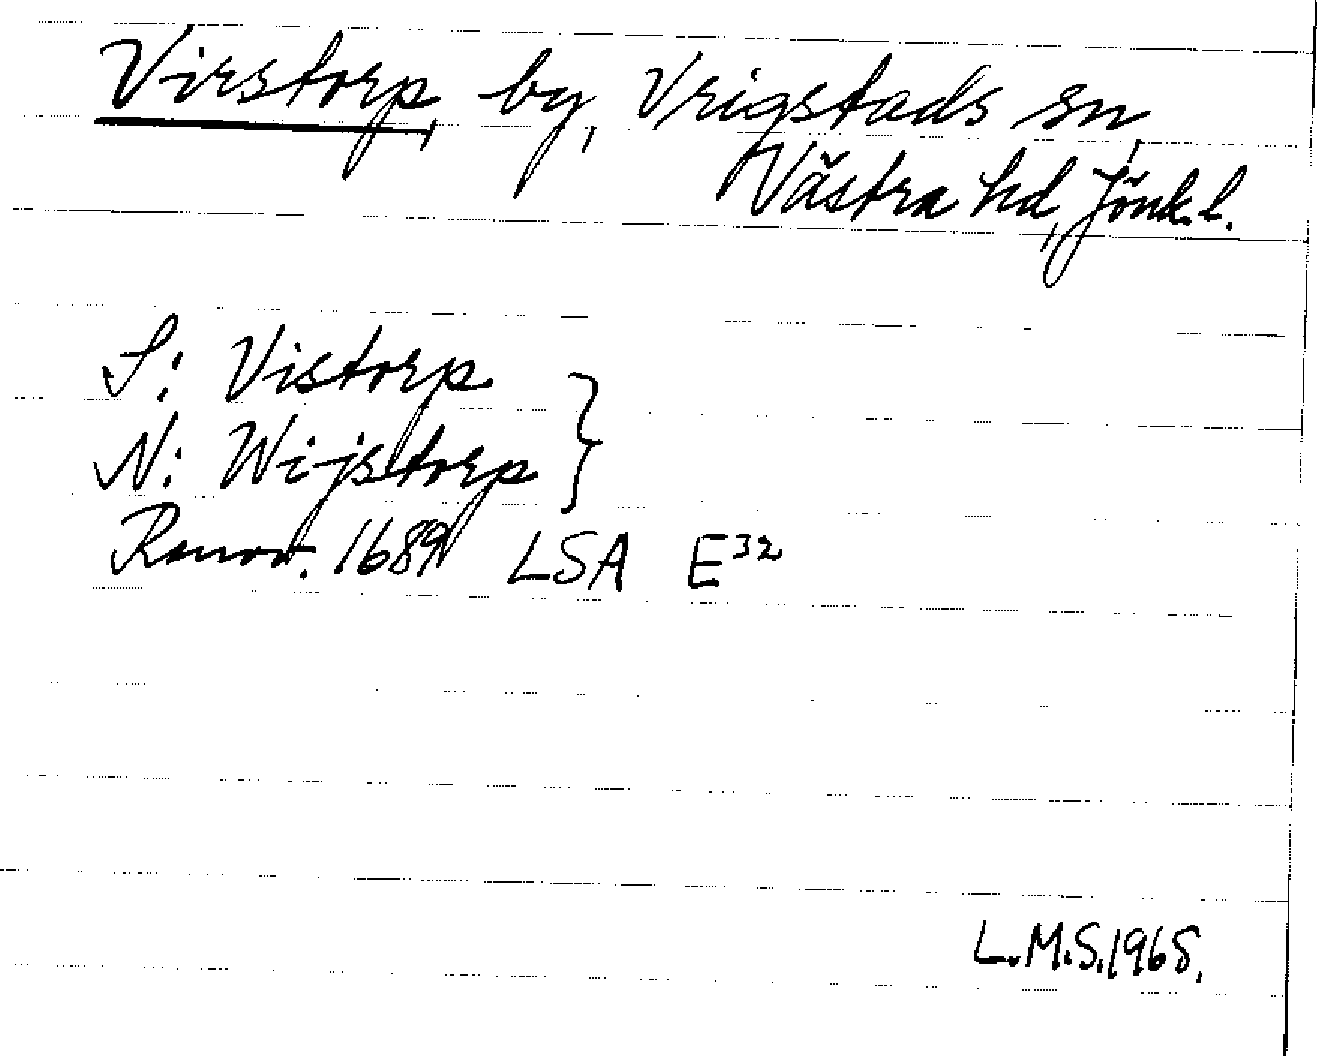 Virstorp, by, Vrigstads sn,
Västra hd, Jönk.l.
S: Vistorp
N: Wijstorp }
Renov. 1689 LSA E³²
L.M.S. 1968.